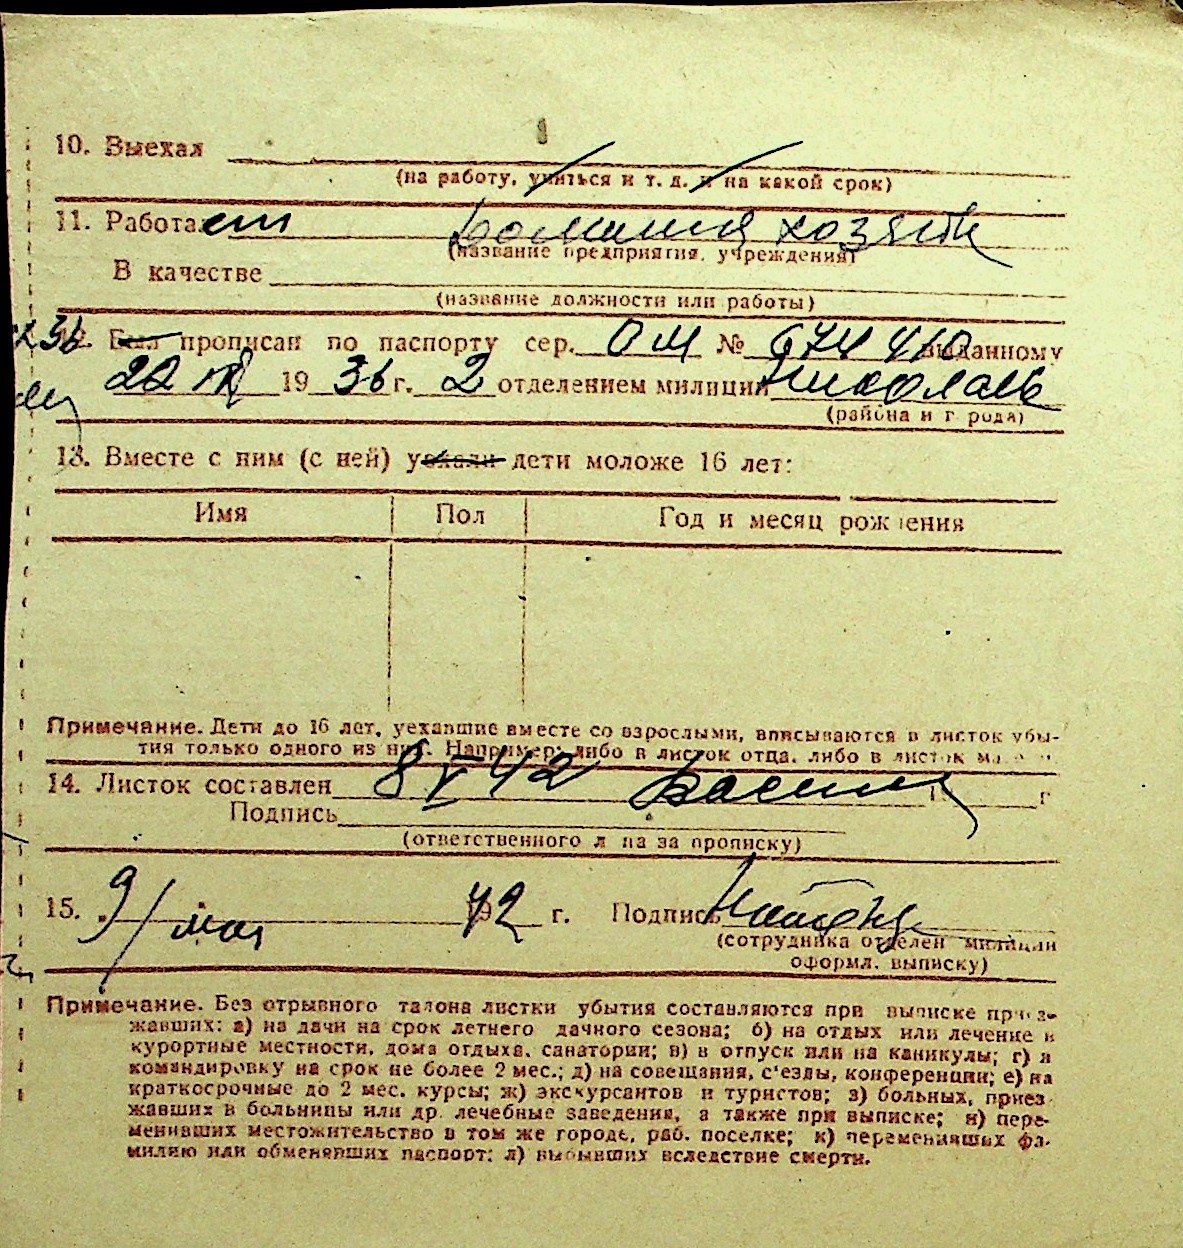 10. Выехал
(на работу, учиться и т. д. и на какой срок)
11. Работает Домашняя хозяйк
(название предприятия, учреждения)
В качестве
(название должности или работы)
12. Был прописан по паспорту сер. ОМ № 674410 выданному
22 1936 г. 2 отделением милиции Николаев
(района и города)
13. Вместе с ним (с ней) уехали дети моложе 16 лет:
Имя Пол Год и месяц рождения
Примечание. Дети до 16 лет, уехавшие вместе со взрослыми, вписываются в листок убы-
тия только одного из них. Например: либо в листок отца, либо в листок
14. Листок составлен 8 V 42 г
Подпись
(ответственного лица за прописку)
15. 9/мая 42 г. Подпись
(сотрудника отделен милиции
оформл. выписку)
Примечание. Без отрывного талона листки убытия составляются при выписке приез-
жавших: а) на дачи на срок летнего дачного сезона; б) на отдых или лечение в
курортные местности, дома отдыха, санатории; в) в отпуск или на каникулы; г) в
командировку на срок не более 2 мес.; д) на совещания, с'езды, конференции; е) на
краткосрочные до 2 мес. курсы; ж) экскурсантов и туристов; з) больных, приез-
жавших в больницы или др. лечебные заведения, а также при выписке; и) пере-
менивших местожительство в том же городе, раб. поселке; к) переменивших фа-
милию или обменявших паспорт; л) выбывших вследствие смерти.